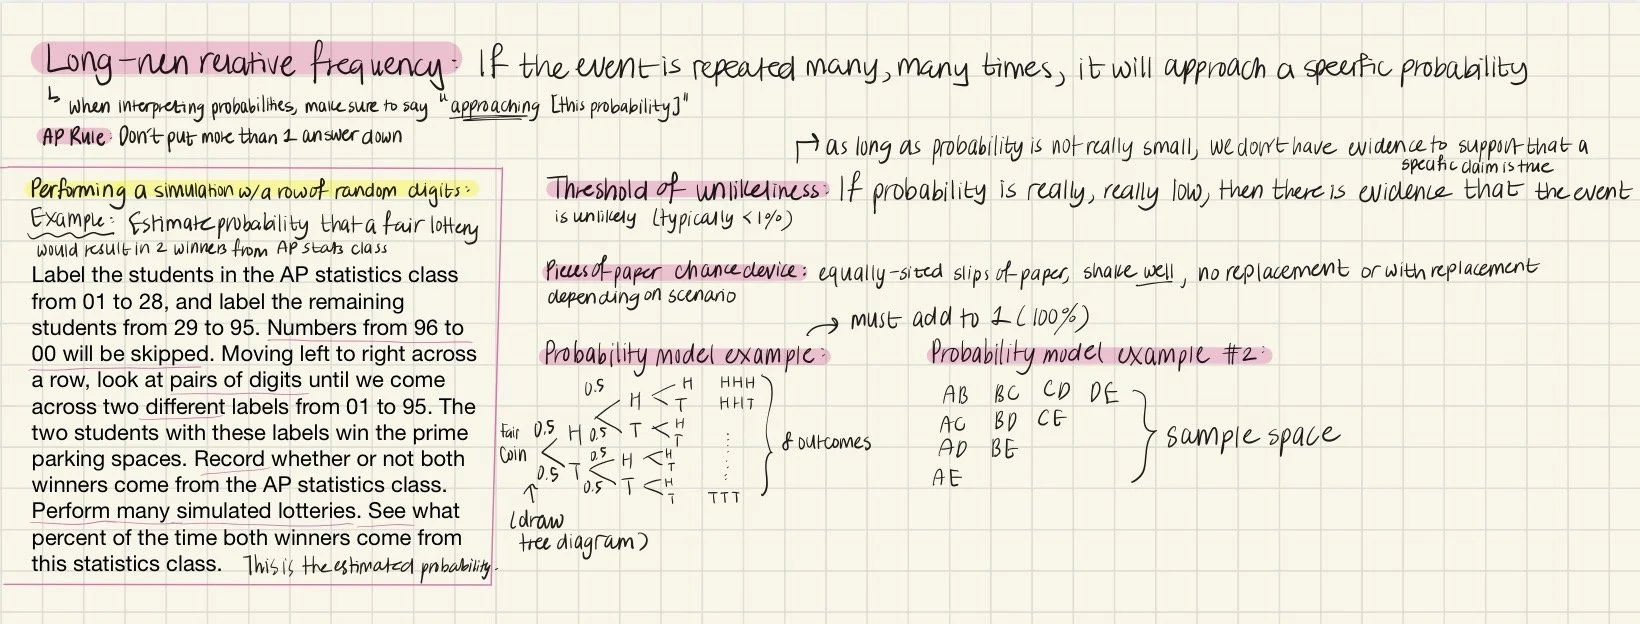 Long-run relative frequency: If the event is repeated many, many times, it will approach a specific probability
↳ when interpreting probabilities, make sure to say "approaching [this probability]"
AP Rule: Don't put more than 1 answer down
Performing a simulation w/a row of random digits:
Example: Estimate probability that a fair lottery
would result in 2 winners from AP stats class
Label the students in the AP statistics class
from 01 to 28, and label the remaining
students from 29 to 95. Numbers from 96 to
00 will be skipped. Moving left to right across
a row, look at pairs of digits until we come
across two different labels from 01 to 95. The
two students with these labels win the prime
parking spaces. Record whether or not both
winners come from the AP statistics class.
Perform many simulated lotteries. See what
percent of the time both winners come from
this statistics class. This is the estimated probability.
→ as long as probability is not really small, we don't have evidence to support that a
specific claim is true
Threshold of unlikeliness: If probability is really, really low, then there is evidence that the event
is unlikely (typically <1%)
Pieces of paper chance device: equally-sized slips of paper, shake well, no replacement or with replacement
depending on scenario
→ must add to 1 (100%)
Probability model example:
0.5 H HHH
H T HHT
Fair 0.5 H 0.5 T H
T
Coin 0.5 H H
T
0.5 T 0.5 T H
T TTT
8 outcomes
(draw
tree diagram)
Probability model example #2:
AB BC CD DE
AC BD CE
AD BE
AE
sample space